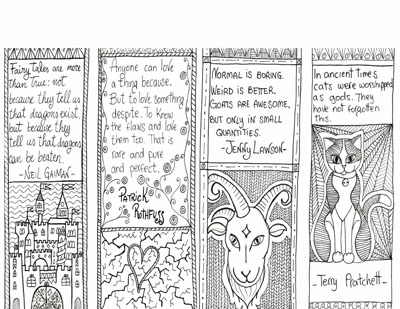 Fairy tales are more
than true: not
because they tell us
that dragons exist,
but because they
tell us that dragons
can be beaten.
-NEIL GAIMAN-
Anyone can love
a thing because.
But to love something
despite. To know
the flaws and love
them too. That is
rare and pure
and perfect.
PATRICK
ROTHFUSS
NORMAL IS BORING.
WEIRD IS BETTER.
GOATS ARE AWESOME,
BUT ONLY IN SMALL
QUANTITIES.
-JENNY LAWSON-
In ancient times
cats were worshipped
as gods. They
have not forgotten
this.
-Terry Pratchett-